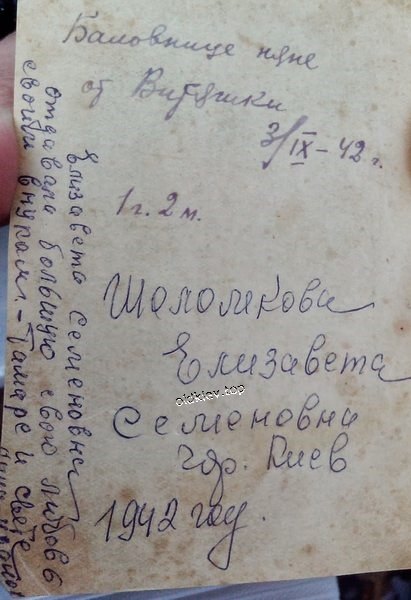 Баловнице няне
от Витяшки
3/IX - 42 г.
1 г. 2 м.
Шоломкова
Елизавета
oldkiev.top
Семеновна
гор. Киев
1942 году.
Елизавета Семеновна
отдавала большую свою любовь
своим внукам - Тамаре и Свете